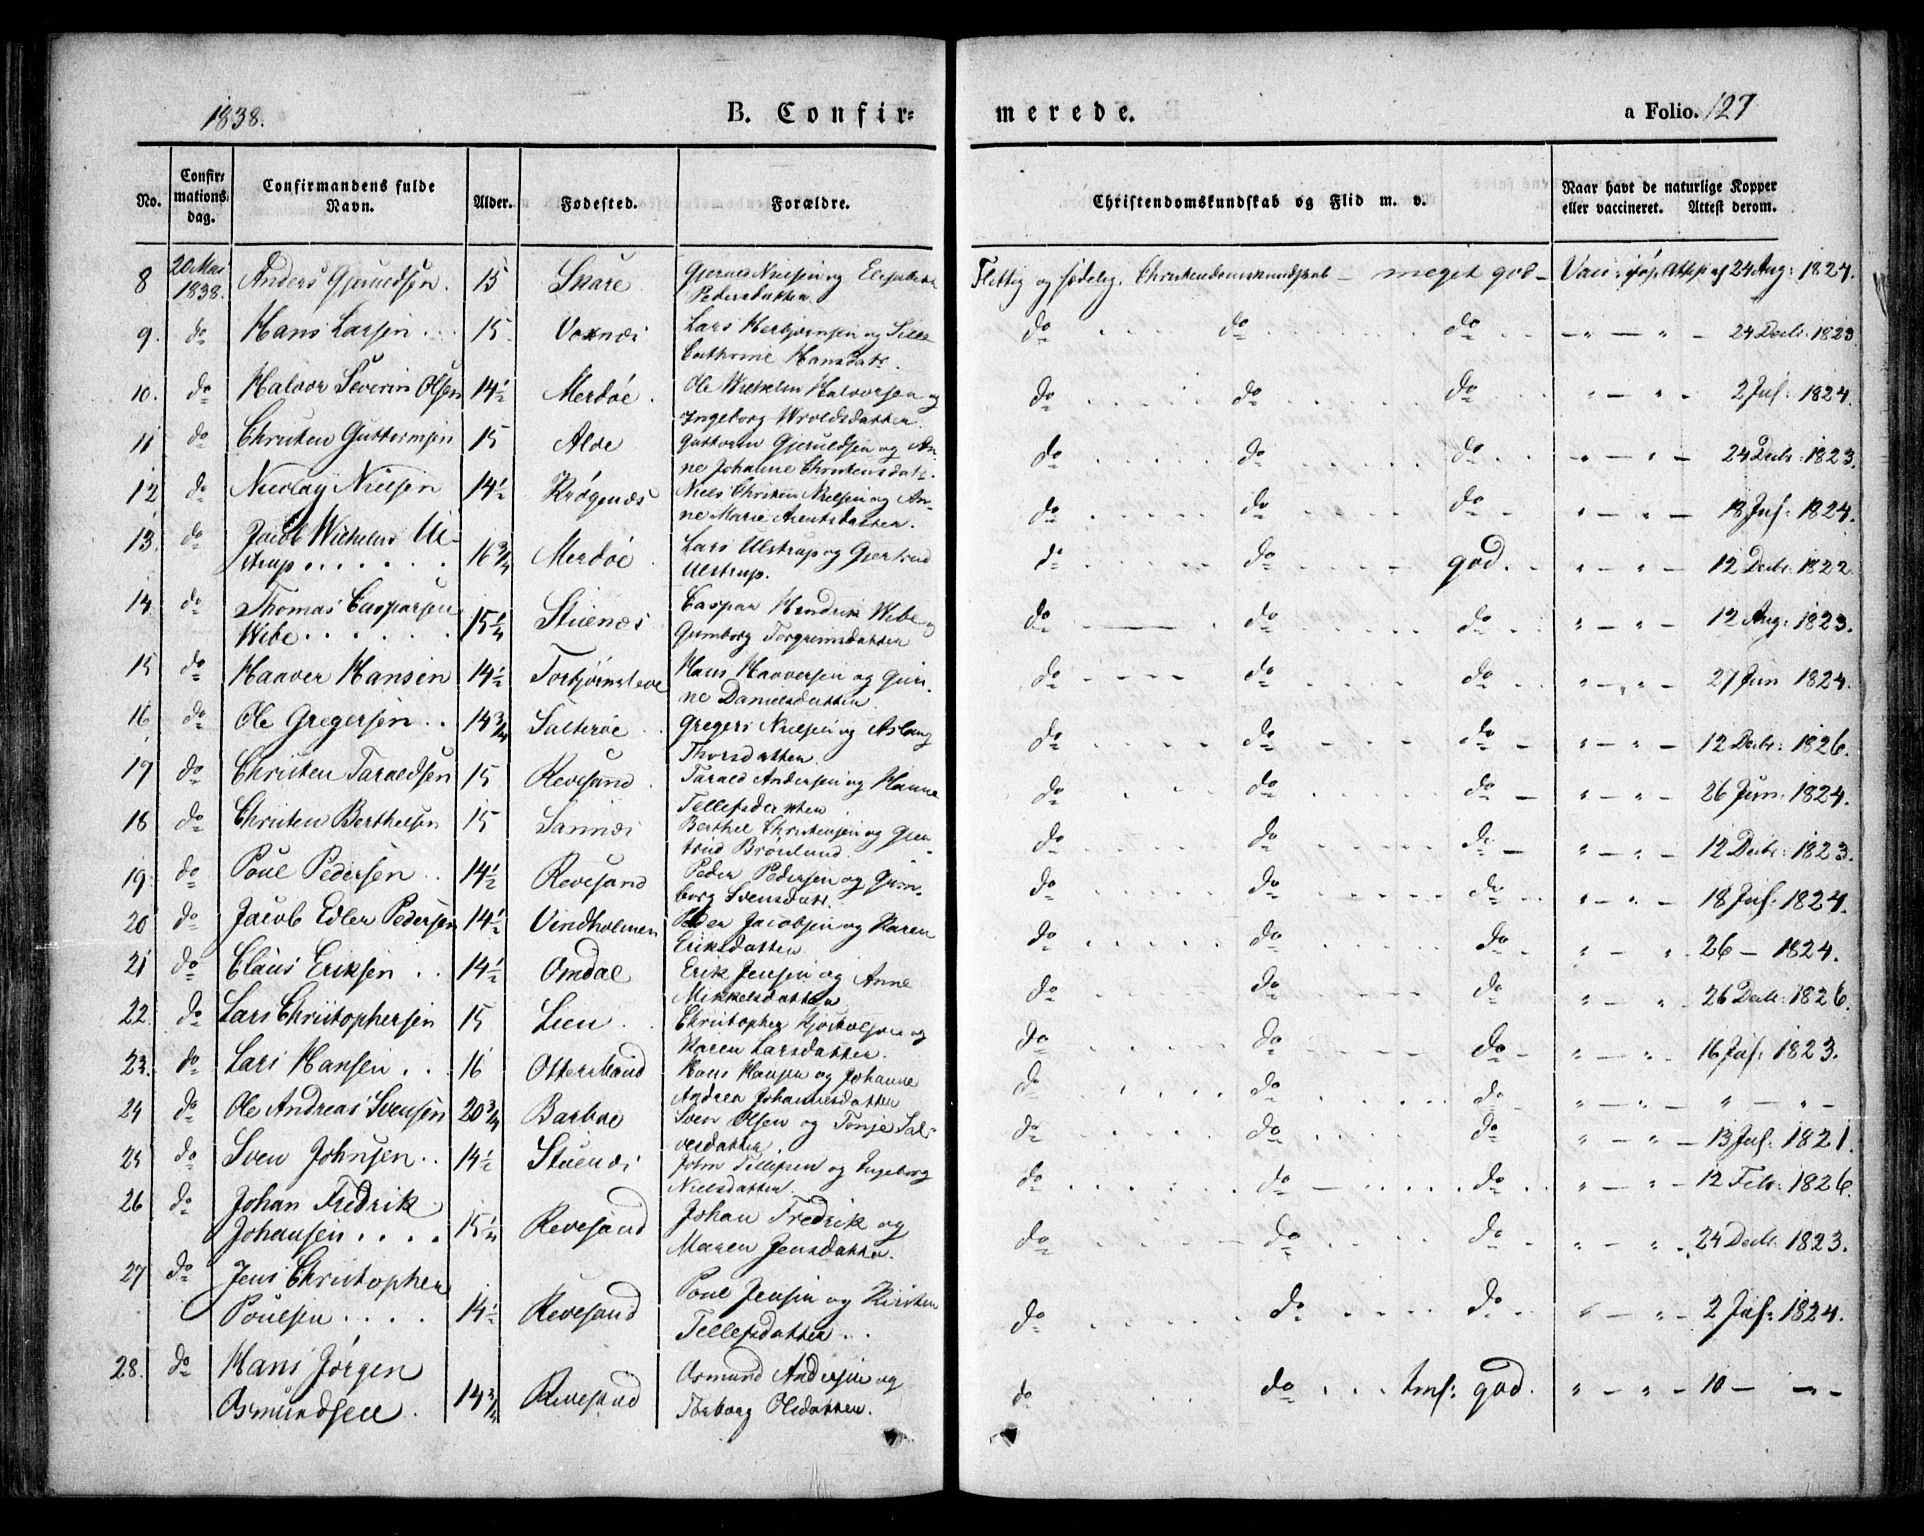 1838.
B. Confirmerede.
a Folio. 127
No. Confirmations dag. Confirmandens fulde Navn. Alder. Fødested. Forældre. Christendomskundskab og Flid m. v. Naar havt de naturlige Kopper eller vaccineret. Attest derom.
8 20 Mai 1838. Anders Gjeruldsen 15 Skare Gjeruld Nielsen og Elisabeth Pedersdatter Flittig og sædelig, Christendomskundskab – meget god – 24 Aug: 1824.
9. do Hans Larsen 15. Voxnæs Lars Kerbjørnsen og Sille Cathrine Hansdatr. do do do 24 Decbr: 1823
10. do Halvor Severin Olsen 14½ Merdøe Ole Wilhelm Halvorsen og Ingeborg Wroldsdatter do do do 2 Jul: 1824.
11 do Christen Guttormsen 15 Alve Guttorm Gjeruldsen og Anne Johanne Christensdatr. do do do 24 Decbr: 1823.
12 do Nicolay Nielsen 14½ Krøgenæs Niels Christen Nielsen og Anne Marie Arentsdatter. do do do 18 Jul: 1824.
13. do Jacob Wilhelm Ulstrup 16¾ Merdøe Lars Ulstrup og Gjertrud Ulstrup. do do god. 12 Decbr: 1822
14. do Thomas Casparsen Wibe 15¼ Stuenæs Caspar Hendrik Wibe og Gunborg Torgrimsdatter do do do 12 Aug: 1823.
15 do Haaver Hansen 14½ Torbjørnsleve Hans Haaversen og Gurine Danielsdatter do do do 27 Jun 1824.
16 do Ole Gregersen 14¾ Salterøe Gregers Nielsen og Aslaug Thorsdatter do do do 12 Decbr: 1826.
17 do Christen Taraldsen 15 Revesand Tarald Andersen og Hanne Tellefsdatter do do do 26 Jun. 1824.
18 do Christen Berthelsen 15 Sannæs Berthel Christensen og Gjertrud Brönlund. do do do 12 Decbr: 1823.
19. do Poul Pedersen 14½ Revesand Peder Pedersen og Gunborg Svensdatr. do do do 18 Jul: 1824.
20 do Jacob Edler Pedersen 14½ Vindholmen Peder Jacobsen og Karen Eriksdatter do do do 26 – 1824.
21 do Claus Eriksen 14½ Omdal Erik Jensen og Anne Mikkelsdatter do do do 26 Decbr: 1826.
22. do Lars Christophersen 15 Lien Christopher og Karen Larsdatter. do do do 16 Jul: 1823.
23. do Lars Hansen 16 Otterstrand Hans Hansen og Johanne Andrea Johannesdatter do do do
24 do Ole Andreas Svensen 20¾ Barboe Sven Olsen og Tonje Salvesdatter do do do 13 Jul: 1821.
25 do Sven Johnsen 14½ Stuenæs John Tellefsen og Ingeborg Nielsdatter. do do do 12 Febr: 1826.
26 do Johan Fredrik Johansen 15¼ Revesand Johan Fredrik og Maren Jensdatter. do do do 24 Decbr. 1823.
27 do Jens Christopher Poulsen 14½ Revesand Poul Jensen og Kirsten Tellefsdatter do do do 2 Jul: 1824.
28. do Hans Jørgen Osmundsen 14¾ Revesand Osmund Andersen og Torborg Olsdatter. do do tml: god. 10 –